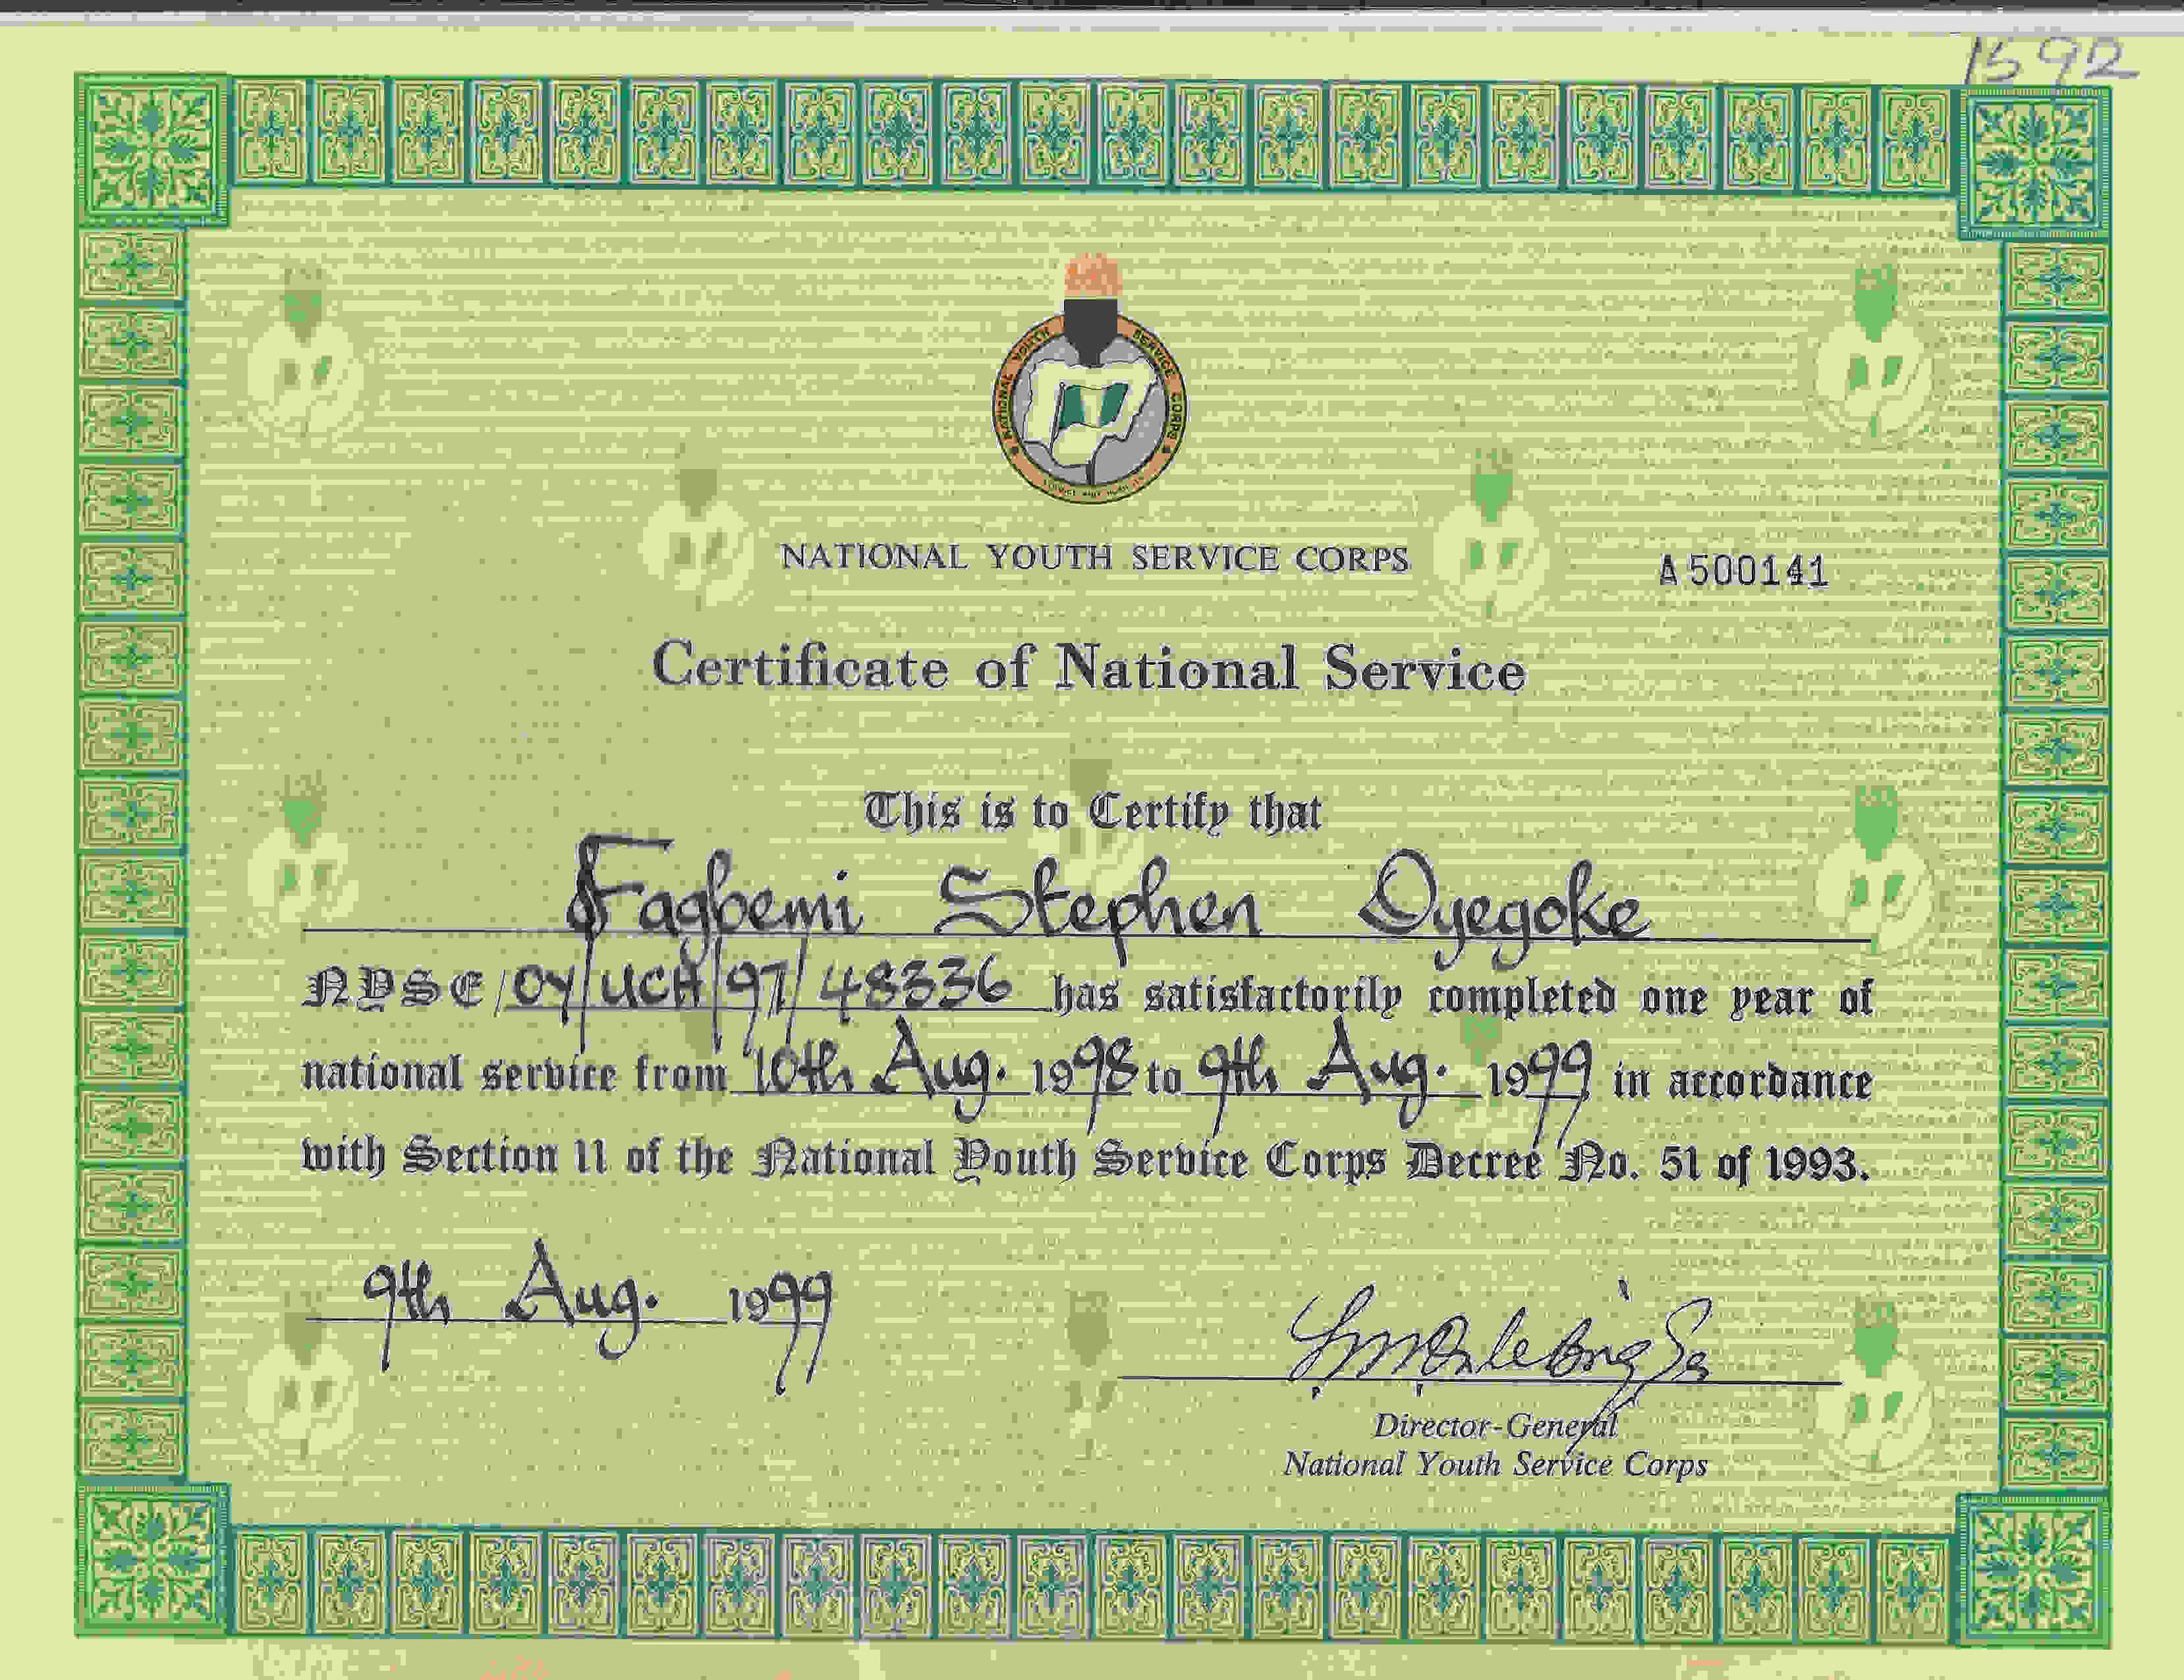 1592
NATIONAL YOUTH SERVICE CORPS
NATIONAL YOUTH SERVICE CORPS
A 500141
Certificate of National Service
This is to Certify that
Fagbemi Stephen Oyegoke
NYSC/OY/UCH/97/48336 has satisfactorily completed one year of
national service from 10th Aug. 1998 to 9th Aug. 1999 in accordance
with Section 11 of the National Youth Service Corps Decree No. 51 of 1993.
9th Aug. 1999
Director-General
National Youth Service Corps